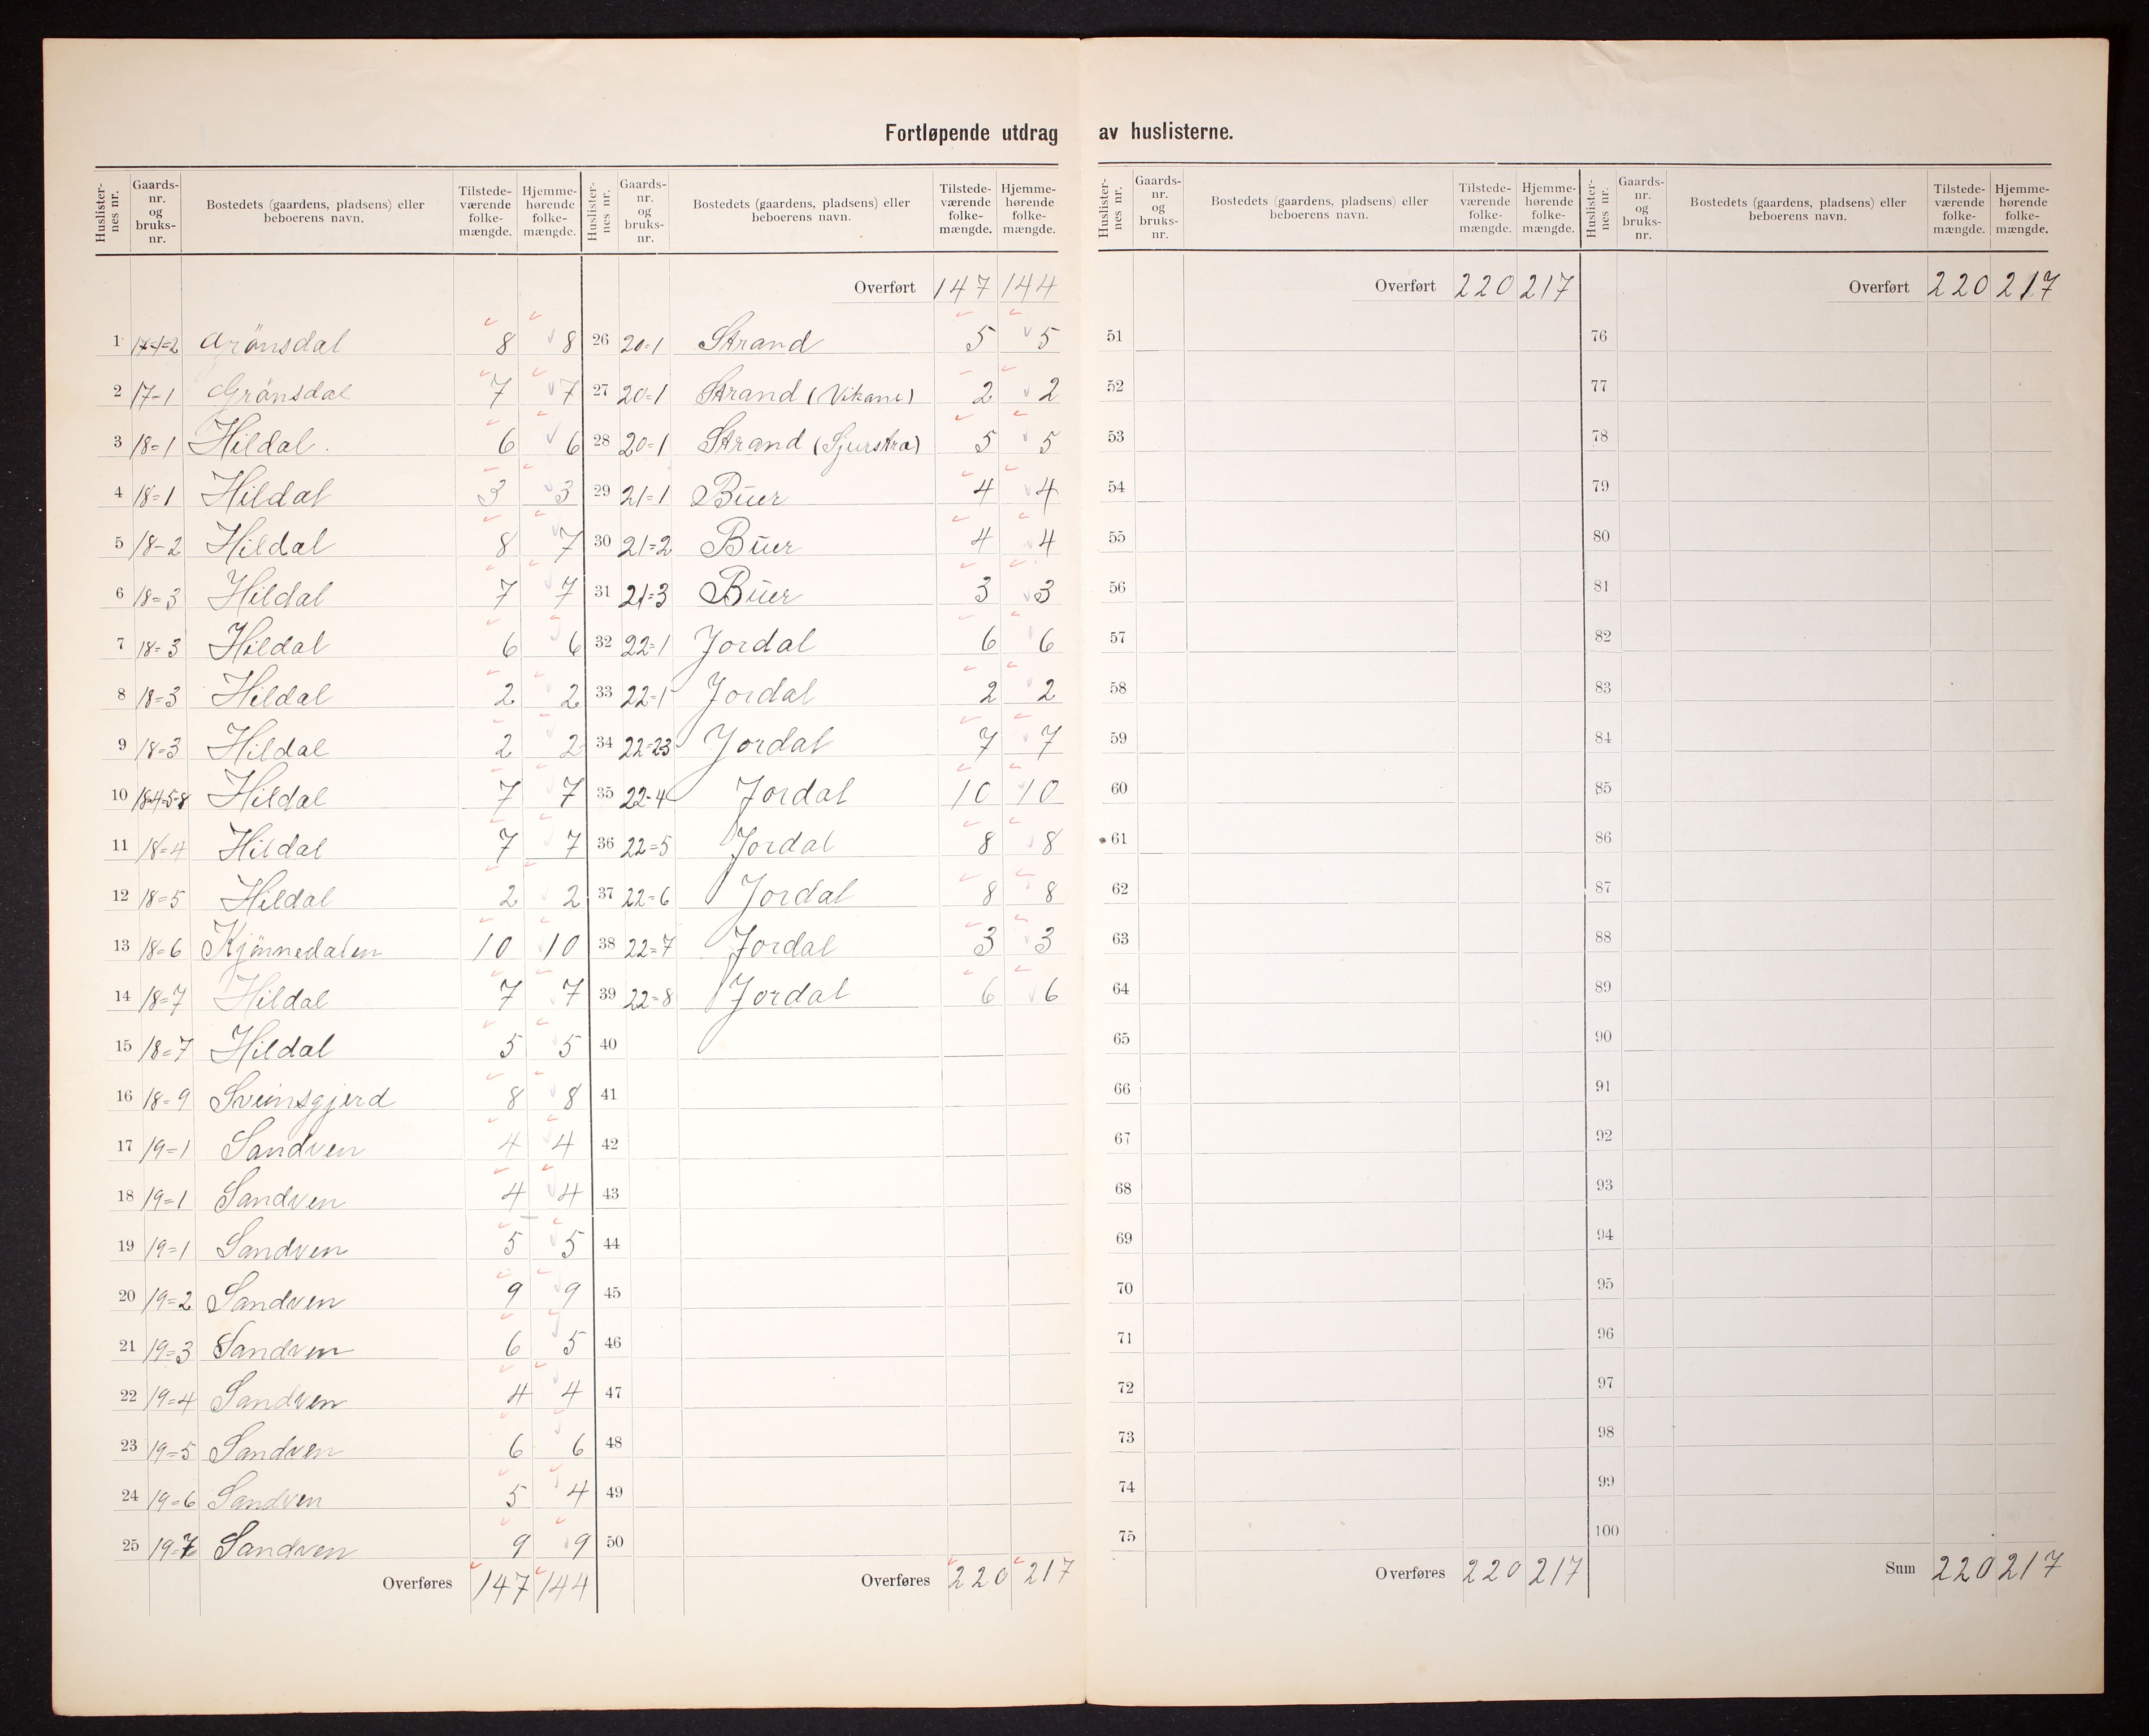 Fortløpende utdrag av huslisterne.
Huslisternes nr. | Gaards-nr. og bruks-nr. | Bostedets (gaardens, pladsens) eller beboerens navn. | Tilstede-værende folke-mængde. | Hjemme-hørende folke-mængde.
1 17-1=2 Grönsdal 8 8
2 17-1 Grönsdal 7 7
3 18=1 Hildal. 6 6
4 18=1 Hildal 3 3
5 18-2 Hildal 8 7
6 18=3 Hildal 7 7
7 18=3 Hildal 6 6
8 18=3 Hildal 2 2
9 18=3 Hildal 2 2
10 18=4=5-8 Hildal 7 7
11 18=4 Hildal 7 7
12 18=5 Hildal 2 2
13 18=6 Kjönnedalen 10 10
14 18=7 Hildal 7 7
15 18=7 Hildal 5 5
16 18=9 Sveinsgjerd 8 8
17 19=1 Sandven 4 4
18 19=1 Sandven 4 4
19 19=1 Sandven 5 5
20 19=2 Sandven 9 9
21 19=3 Sandven 6 5
22 19=4 Sandven 4 4
23 19=5 Sandven 6 6
24 19=6 Sandven 5 4
25 19=7 Sandven 9 9
Overføres 147 144
Huslisternes nr. | Gaards-nr. og bruks-nr. | Bostedets (gaardens, pladsens) eller beboerens navn. | Tilstede-værende folke-mængde. | Hjemme-hørende folke-mængde.
Overført 147 144
26 20=1 Strand 5 5
27 20=1 Strand (Vikane) 2 2
28 20=1 Strand (Sjurstra) 5 5
29 21=1 Büer 4 4
30 21=2 Büer 4 4
31 21=3 Büer 3 3
32 22=1 Jordal 6 6
33 22=1 Jordal 2 2
34 22=23 Jordal 7 7
35 22-4 Jordal 10 10
36 22=5 Jordal 8 8
37 22=6 Jordal 8 8
38 22=7 Jordal 3 3
39 22=8 Jordal 6 6
40
41
42
43
44
45
46
47
48
49
50
Overføres 220 217
Huslisternes nr. | Gaards-nr. og bruks-nr. | Bostedets (gaardens, pladsens) eller beboerens navn. | Tilstede-værende folke-mængde. | Hjemme-hørende folke-mængde.
Overført 220 217
51
52
53
54
55
56
57
58
59
60
61
62
63
64
65
66
67
68
69
70
71
72
73
74
75
Overføres 220 217
Huslisternes nr. | Gaards-nr. og bruks-nr. | Bostedets (gaardens, pladsens) eller beboerens navn. | Tilstede-værende folke-mængde. | Hjemme-hørende folke-mængde.
Overført 220 217
76
77
78
79
80
81
82
83
84
85
86
87
88
89
90
91
92
93
94
95
96
97
98
99
100
Sum 220 217